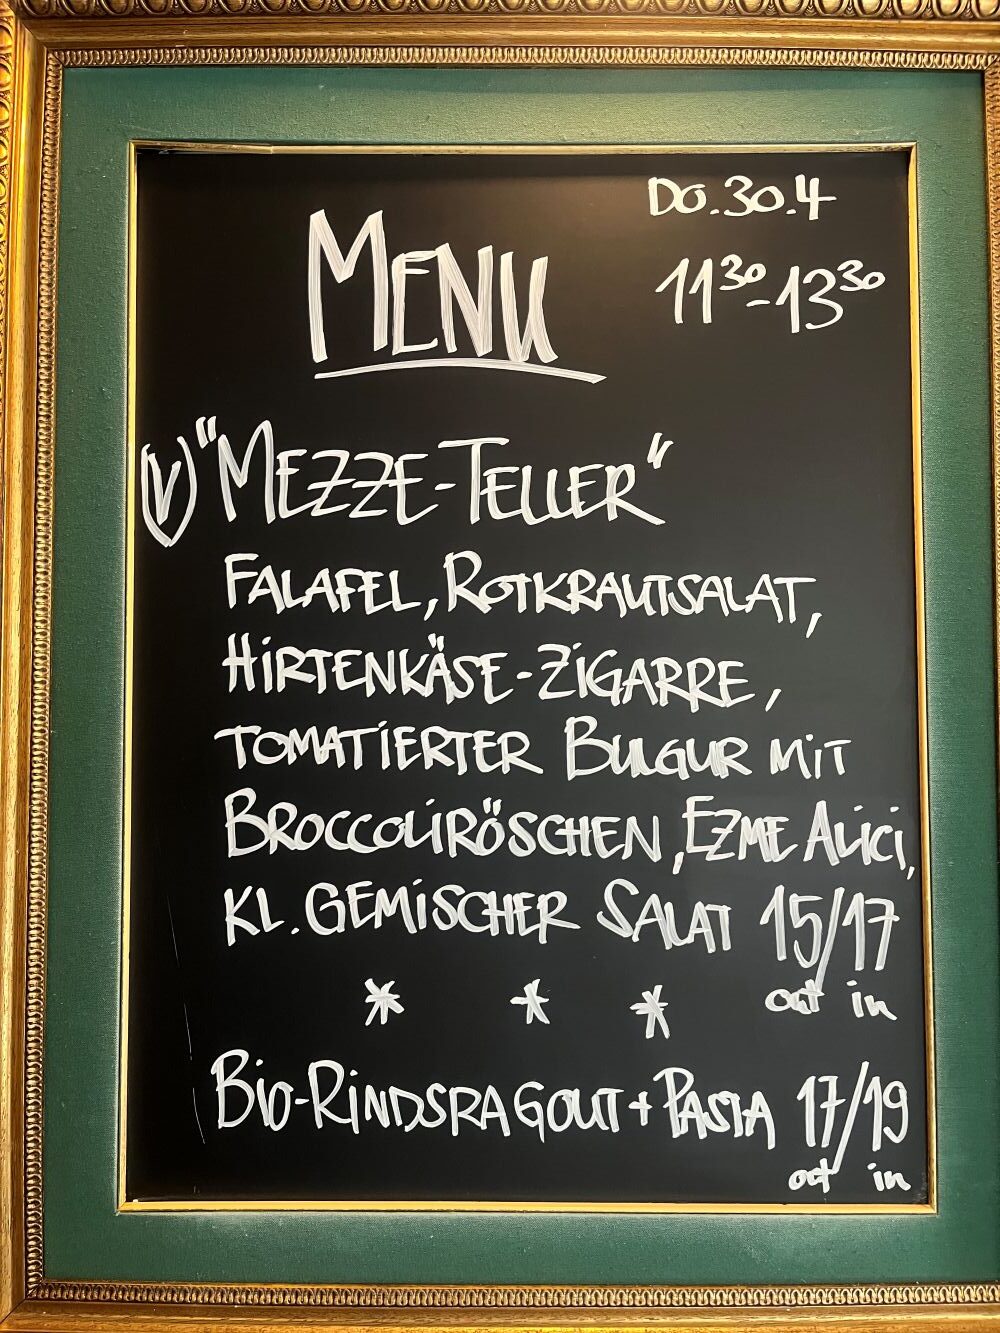 DO. 30.4
11³⁰-13³⁰
MENU
(V) "MEZZE-TELLER"
FALAFEL, ROTKRAUTSALAT,
HIRTENKÄSE-ZIGARRE,
TOMATIERTER BULGUR MIT
BROCCOLIRÖSCHEN, EZME ALICI,
KL. GEMISCHER SALAT 15/17
out in
* * *
BIO-RINDSRAGOUT + PASTA 17/19
out in